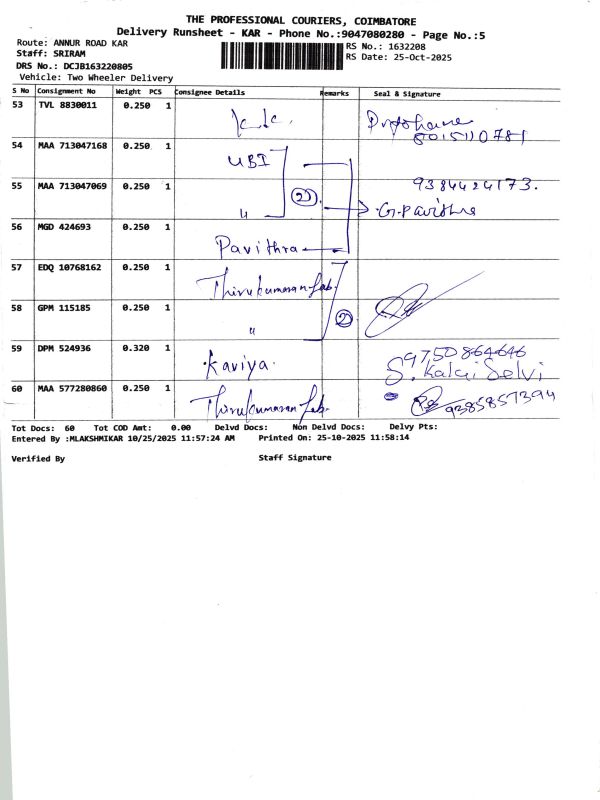 THE PROFESSIONAL COURIERS, COIMBATORE
Delivery Runsheet - KAR - Phone No.:9047080280 - Page No.:5
Route: ANNUR ROAD KAR
Staff: SRIRAM
DRS No.: DCJB163220805
Vehicle: Two Wheeler Delivery
RS No.: 1632208
RS Date: 25-Oct-2025
S No Consignment No Weight PCS Consignee Details Remarks Seal & Signature
53 TVL 8830011 0.250 1
8015110781
54 MAA 713047168 0.250 1 UBI
55 MAA 713047069 0.250 1 " 2 9384424173.
G.Pavithra
56 MGD 424693 0.250 1 Pavithra
57 EDQ 10768162 0.250 1 Thirukumaran Lab.
58 GPM 115185 0.250 1 " 2
59 DPM 524936 0.320 1 Kaviya. 9750864646
S. Kalai Selvi
60 MAA 577280860 0.250 1 Thirukumaran Lab. 9385857394
Tot Docs: 60 Tot COD Amt: 0.00 Delvd Docs: Non Delvd Docs: Delvy Pts:
Entered By :MLAKSHMIKAR 10/25/2025 11:57:24 AM Printed On: 25-10-2025 11:58:14
Verified By Staff Signature